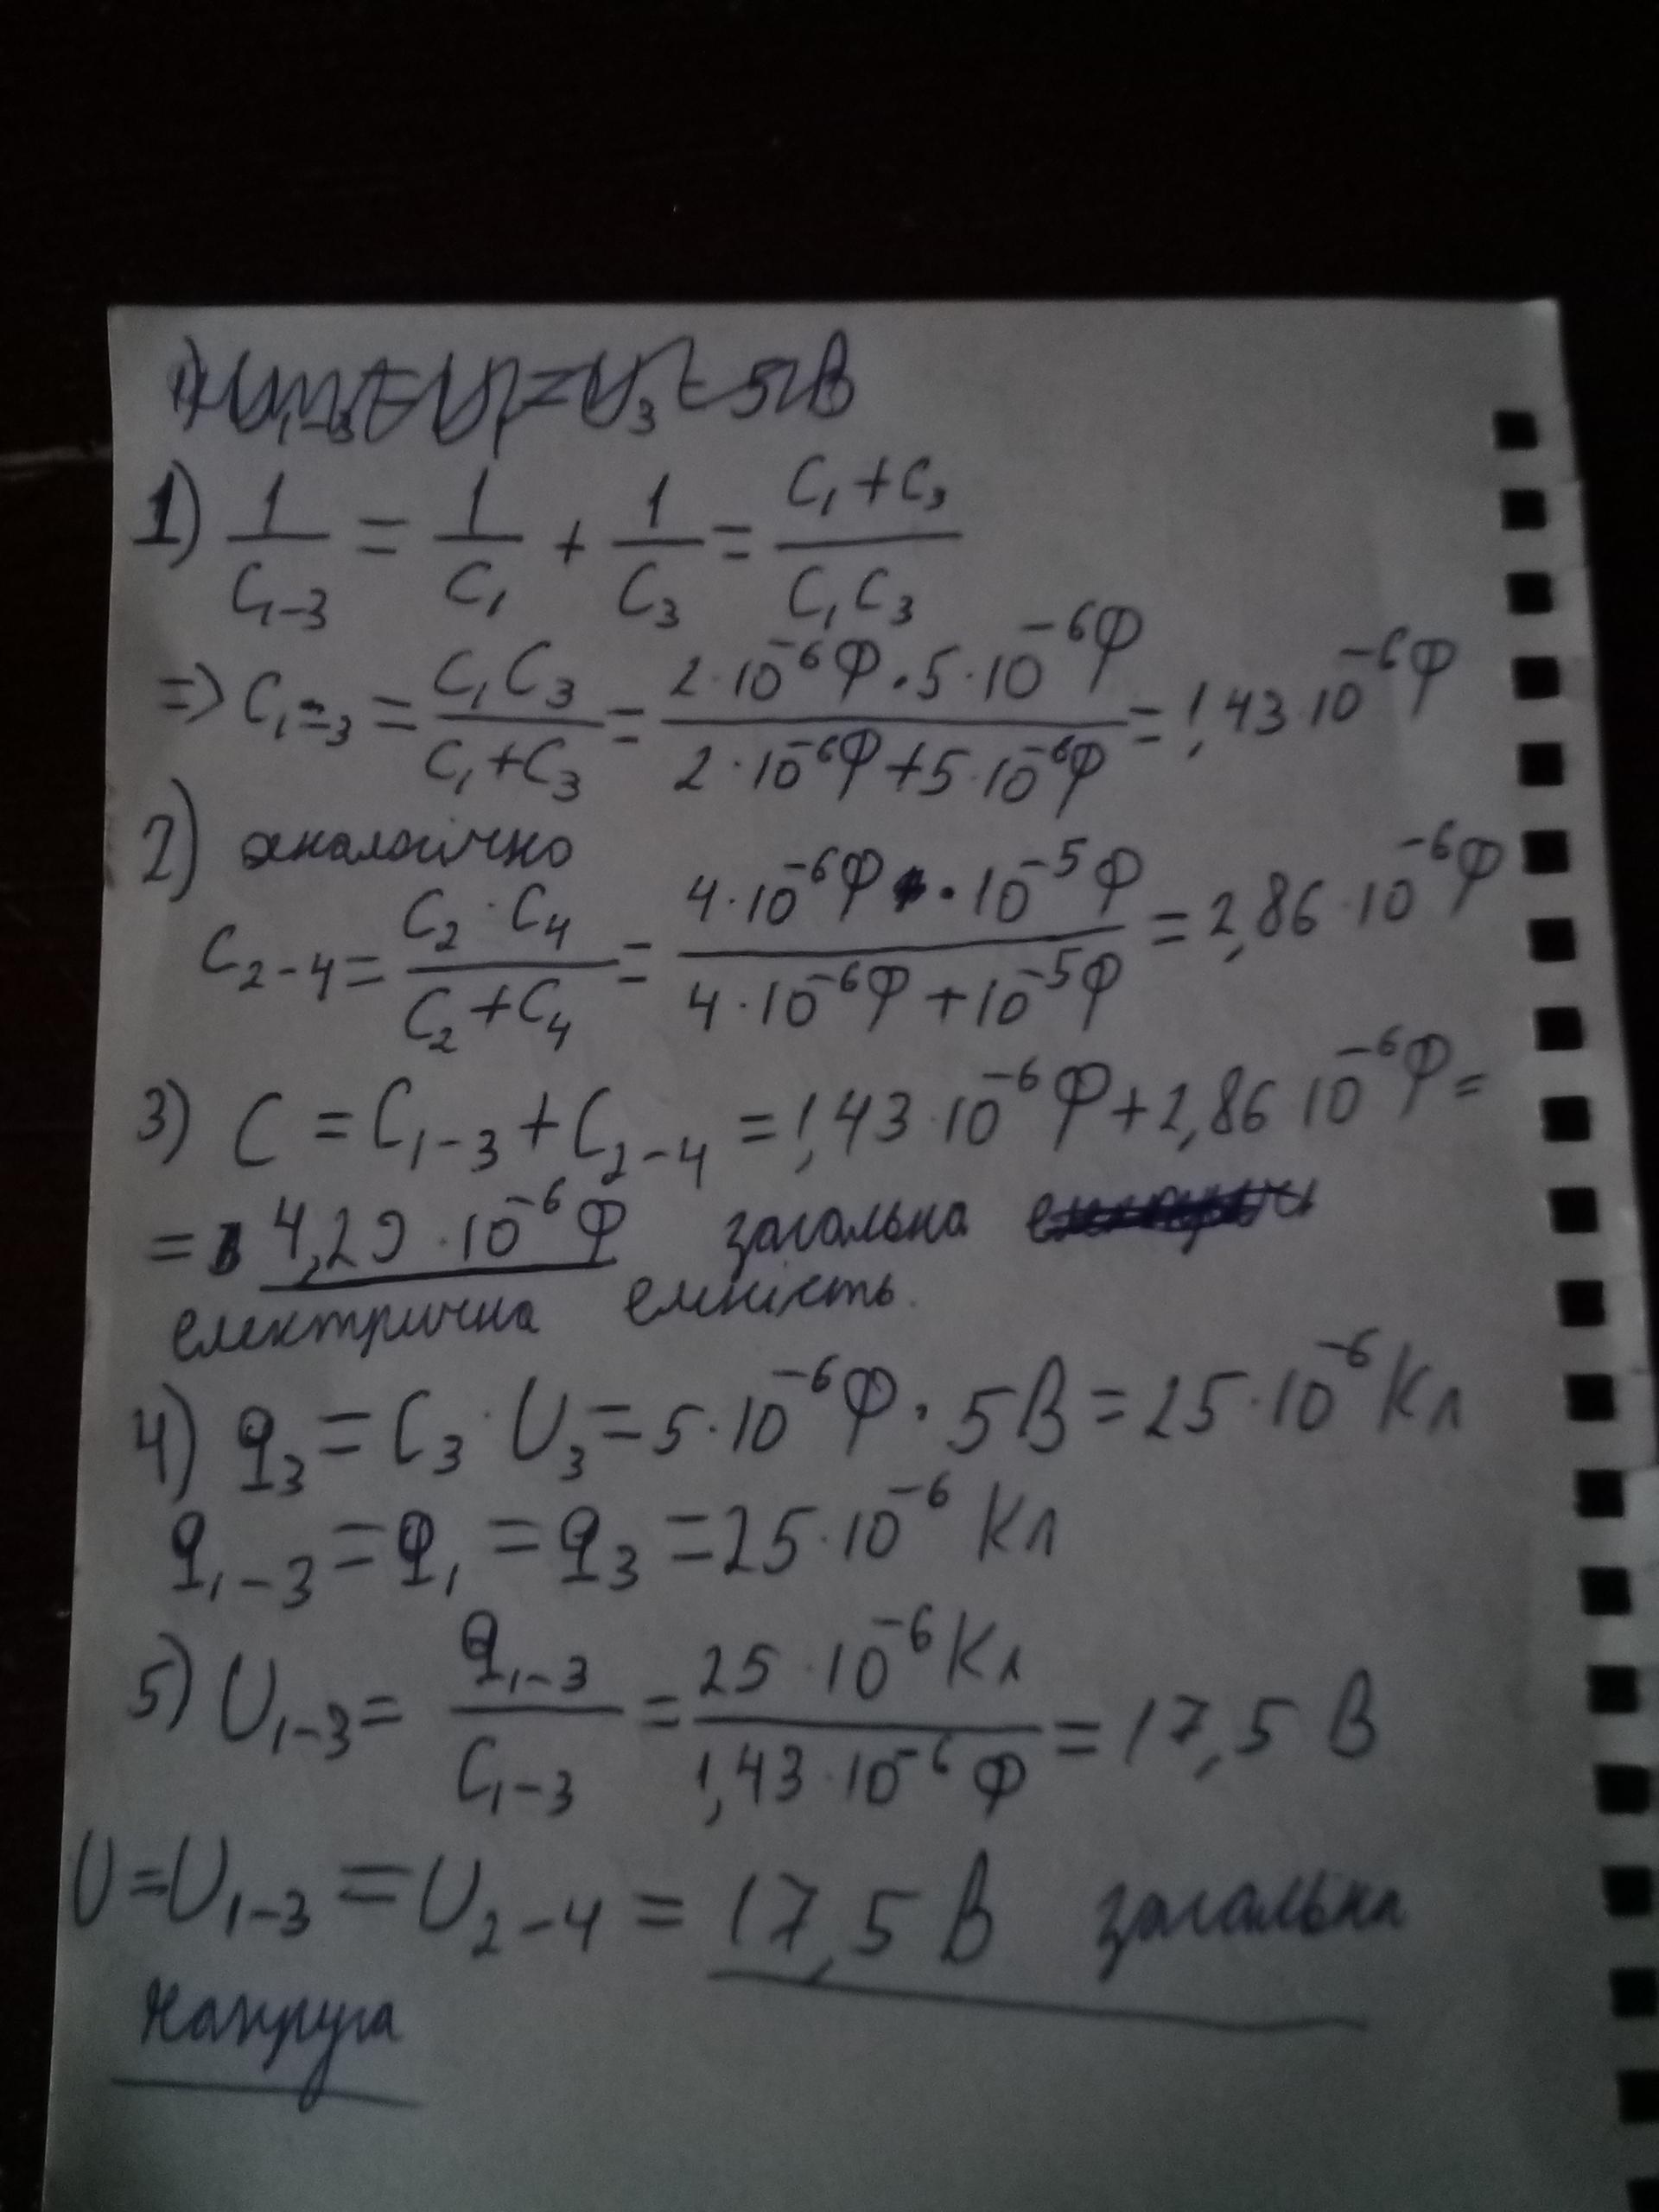 1) 1/C₁₋₃ = 1/C₁ + 1/C₃ = (C₁+C₃)/(C₁C₃)
=> C₁₋₃ = (C₁C₃)/(C₁+C₃) = (2·10⁻⁶Ф·5·10⁻⁶Ф)/(2·10⁻⁶Ф+5·10⁻⁶Ф) = 1,43·10⁻⁶Ф
2) аналогічно
C₂₋₄ = (C₂·C₄)/(C₂+C₄) = (4·10⁻⁶Ф·10⁻⁵Ф)/(4·10⁻⁶Ф+10⁻⁵Ф) = 2,86·10⁻⁶Ф
3) C = C₁₋₃+C₂₋₄ = 1,43·10⁻⁶Ф+2,86·10⁻⁶Ф =
= 4,29·10⁻⁶Ф загальна
електрична ємність.
4) q₃ = C₃·U₃ = 5·10⁻⁶Ф·5В = 25·10⁻⁶Кл
q₁₋₃ = q₁ = q₃ = 25·10⁻⁶ Кл
5) U₁₋₃ = q₁₋₃/C₁₋₃ = (25·10⁻⁶Кл)/(1,43·10⁻⁶Ф) = 17,5 В
U = U₁₋₃ = U₂₋₄ = 17,5 В загальна
напруга